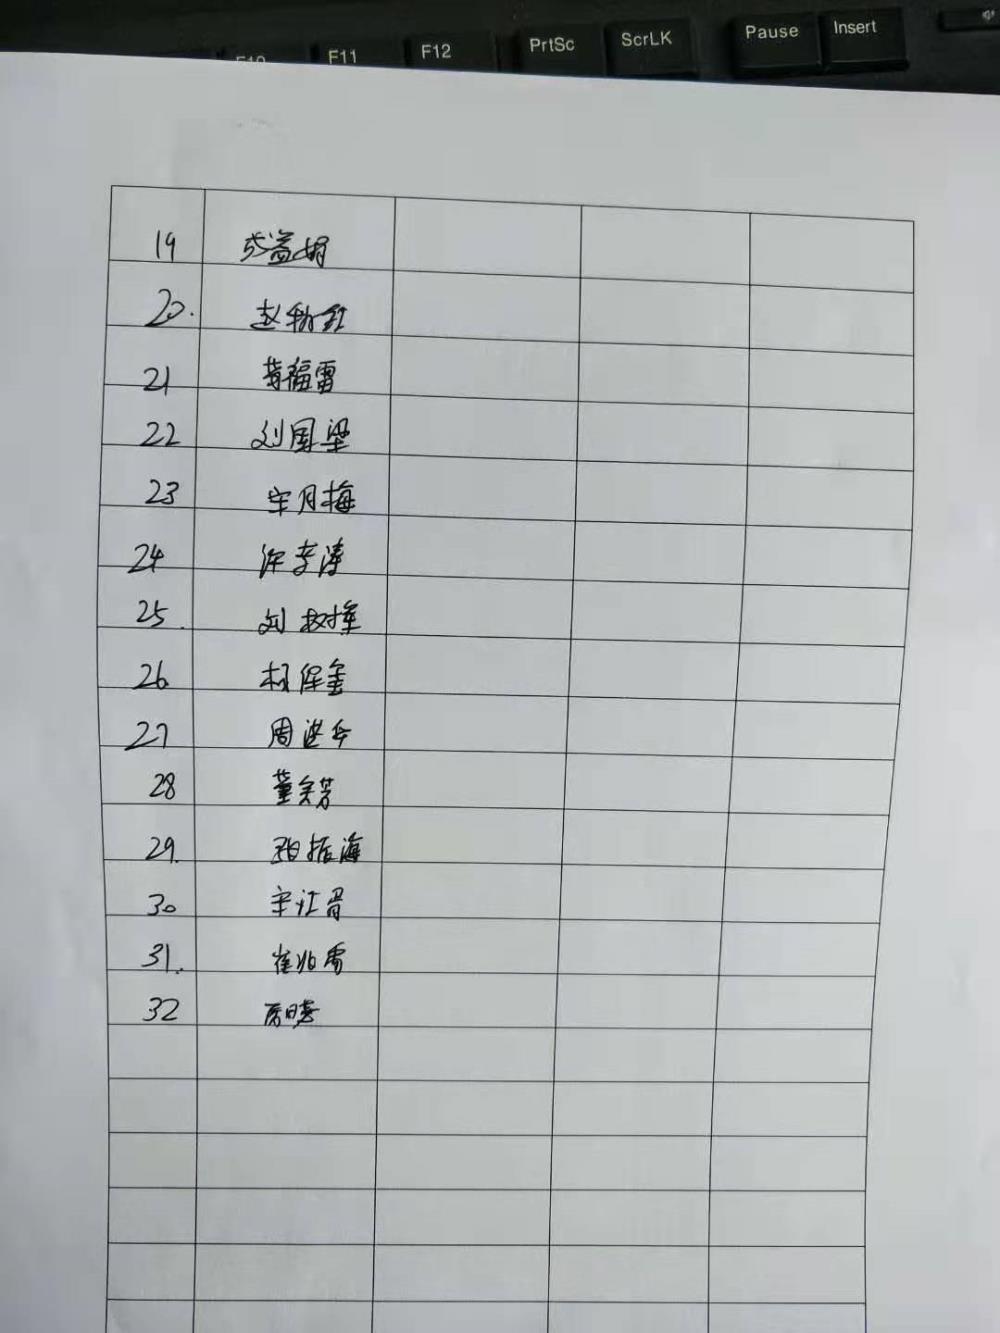 F10
F11
F12
PrtSc
ScrLK
Pause
Insert
19 张益娟
20. 赵
21 黄福雷
22 刘国梁
23 宋月梅
24 徐孝涛
25. 刘
26 杨保金
27 周进兵
28 董美芳
29. 振海
30 宋江
31. 崔兆雷
32